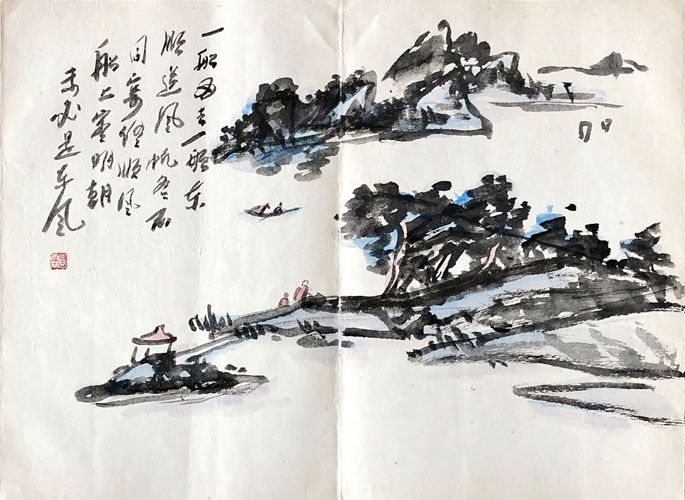 一船西去一船东
顺逆风帆各不
同寄语顺风
船上客明朝
未必是东风